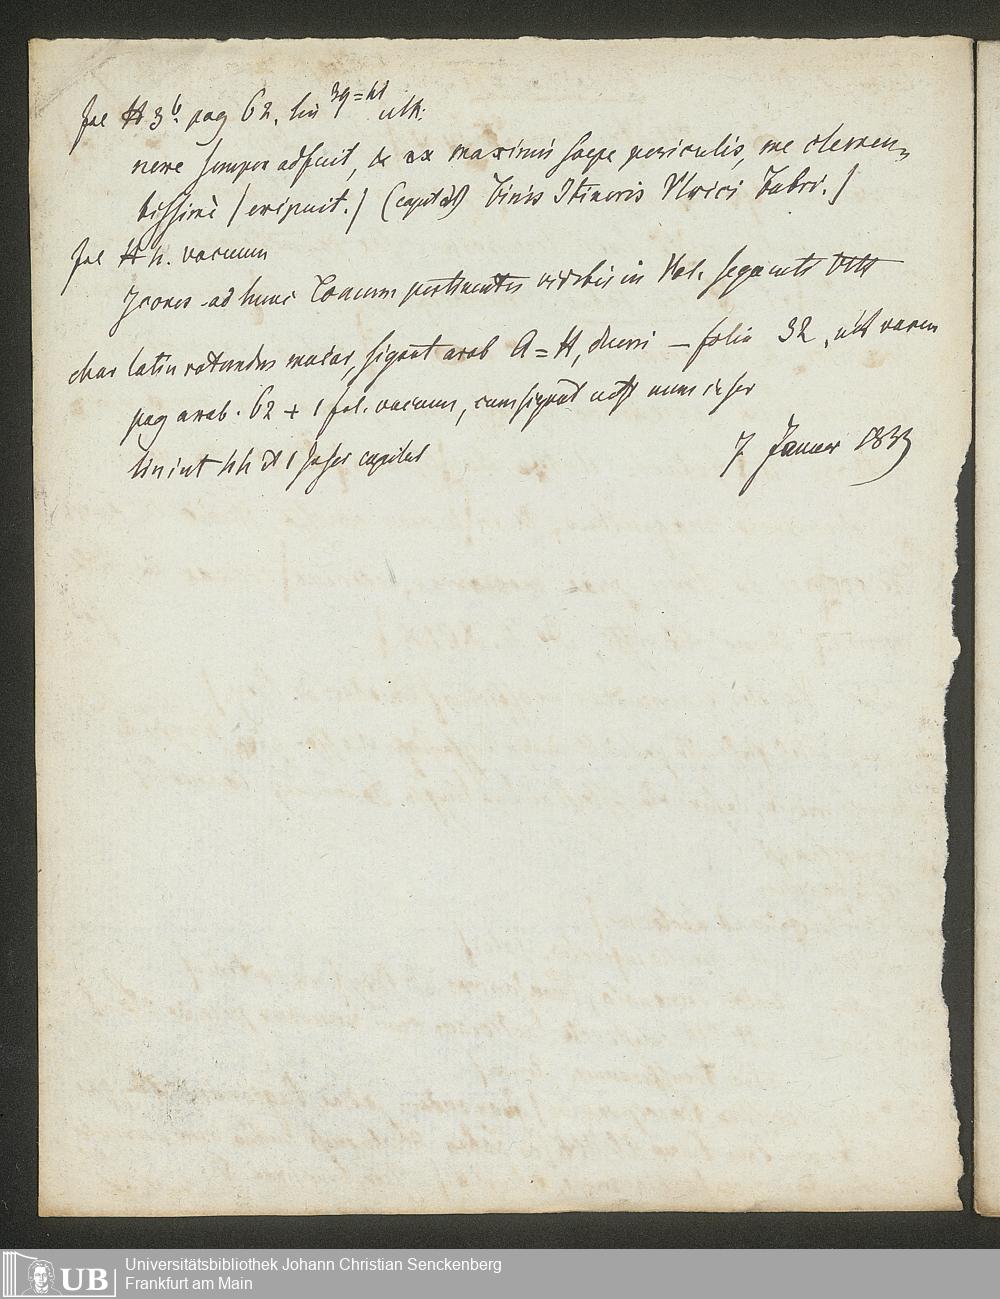 fol H 3b. pag 62. lin 39=41 ult.
nere semper adfuit, & ex maximis saepe periculis, me clemen-
tissimè / eripuit. / (capital) Finis Itineris Vlrici Fabri. /
fol H 4. vacuum
Icones ad hunc Tomum pertinentes videbis in Vol. sequenti VIII
char latin rotundus maior, signat arab A=H, duerni — folia 32, ult vacuu
pag arab. 62 + 1 fol. vacuum, cum signat num
lin int 44 &
7 Januar 1833
Universitätsbibliothek Johann Christian Senckenberg
Frankfurt am Main
UB